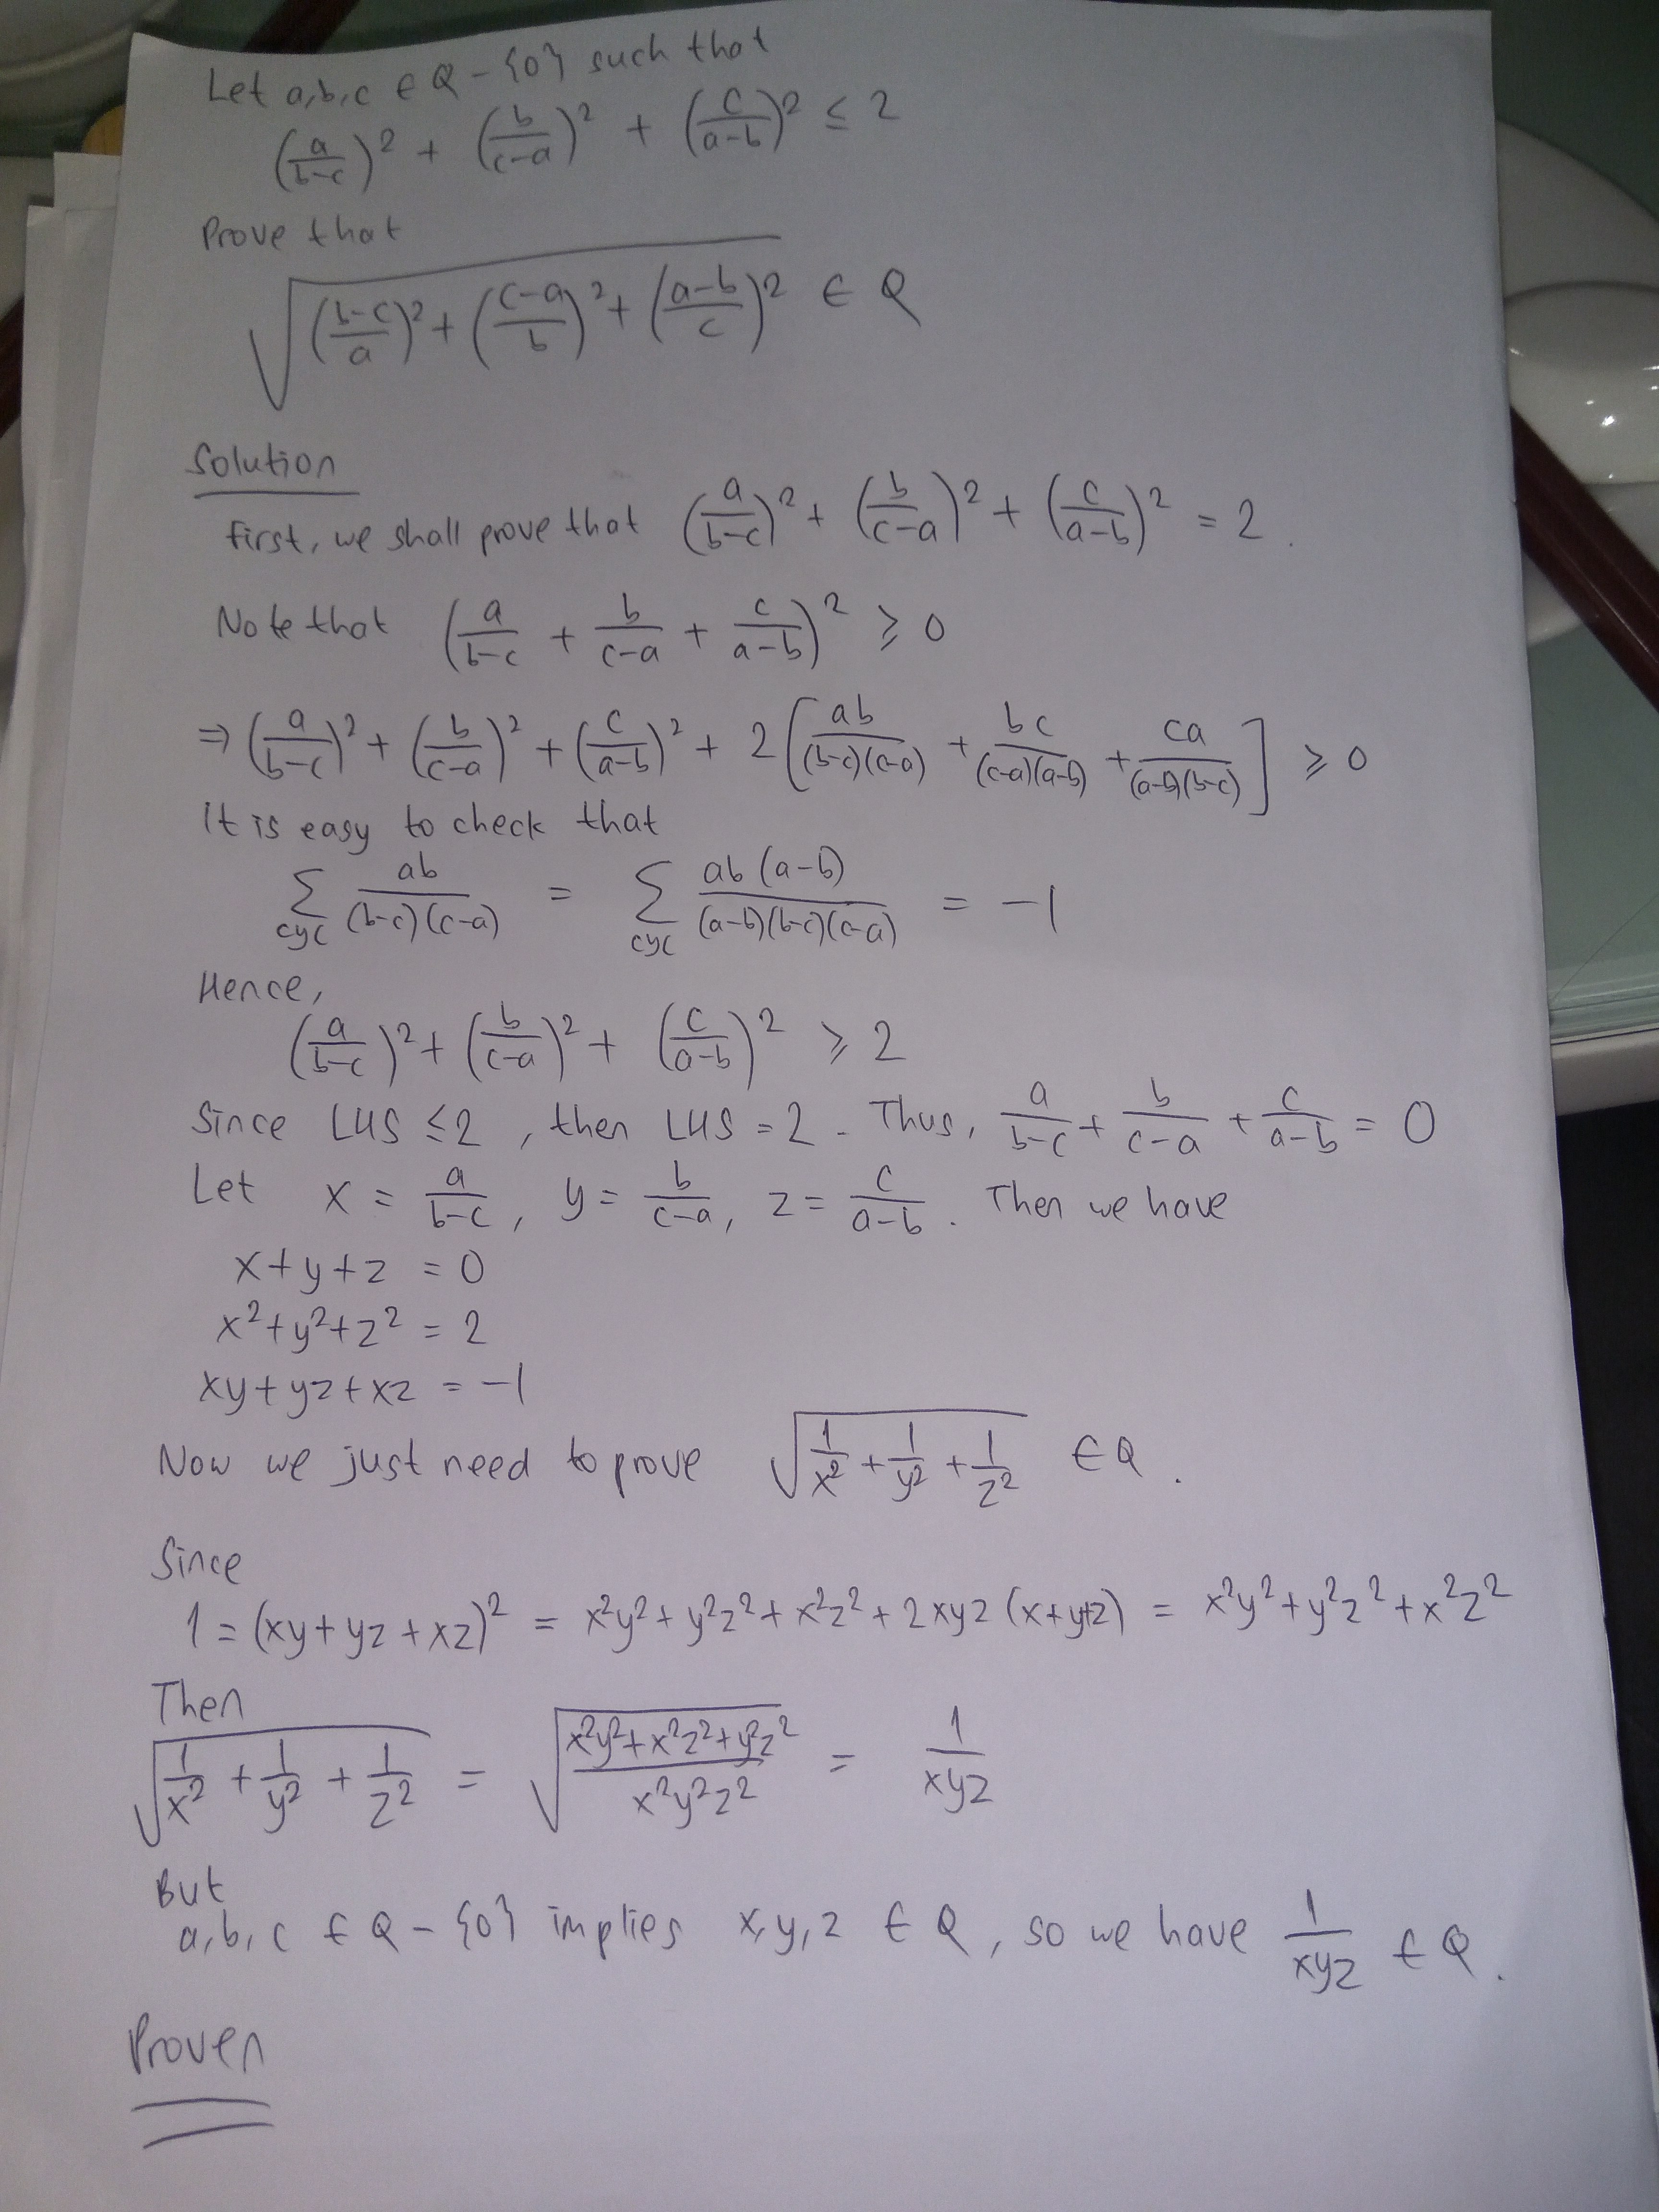 Let a,b,c ∈ Q - {0} such that
(a/(b-c))² + (b/(c-a))² + (c/(a-b))² ≤ 2
Prove that
√(((b-c)/a)² + ((c-a)/b)² + ((a-b)/c)²) ∈ Q
Solution
First, we shall prove that (a/(b-c))² + (b/(c-a))² + (c/(a-b))² = 2.
Note that (a/(b-c) + b/(c-a) + c/(a-b))² ≥ 0
⇒ (a/(b-c))² + (b/(c-a))² + (c/(a-b))² + 2[ab/((b-c)(c-a)) + bc/((c-a)(a-b)) + ca/((a-b)(b-c))] ≥ 0
It is easy to check that
∑cyc ab/((b-c)(c-a)) = ∑cyc ab(a-b)/((a-b)(b-c)(c-a)) = -1
Hence,
(a/(b-c))² + (b/(c-a))² + (c/(a-b))² ≥ 2
Since LHS ≤ 2, then LHS = 2. Thus, a/(b-c) + b/(c-a) + c/(a-b) = 0
Let x = a/(b-c), y = b/(c-a), z = c/(a-b). Then we have
x+y+z = 0
x²+y²+z² = 2
xy+yz+xz = -1
Now we just need to prove √(1/x² + 1/y² + 1/z²) ∈ Q.
Since
1 = (xy+yz+xz)² = x²y²+y²z²+x²z²+2xyz(x+y+z) = x²y²+y²z²+x²z²
Then
√(1/x² + 1/y² + 1/z²) = √((x²y²+x²z²+y²z²)/(x²y²z²)) = 1/(xyz)
But
a,b,c ∈ Q - {0} implies x,y,z ∈ Q, so we have 1/(xyz) ∈ Q.
Proven